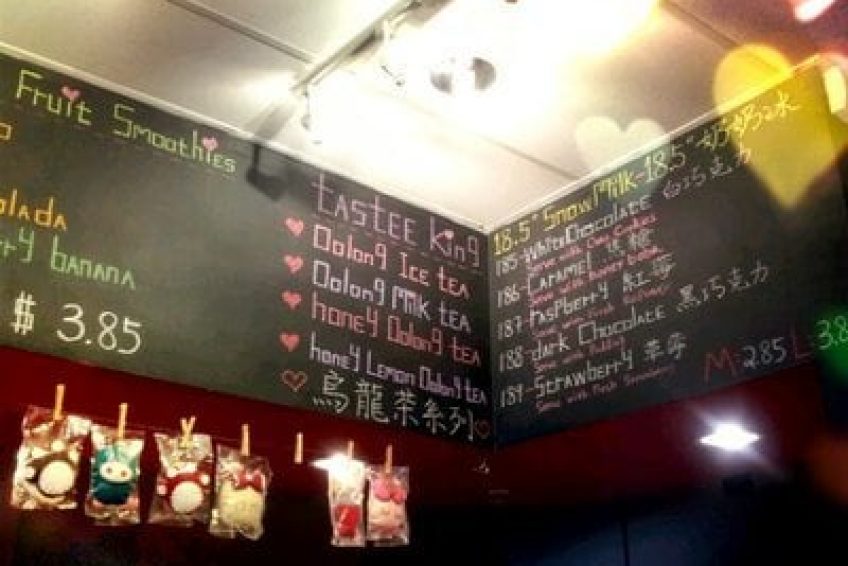 Fruit Smoothies
olada
rry banana
$ 3.85
tastee King
Oolong Ice tea
Oolong Milk tea
honey Oolong tea
honey Lemon Oolong tea
烏龍茶系列
18.5° Snow Milk-18.5° 奶奶冰
185-White Chocolate 白巧克力
186-Caramel 焦糖
187-raspberry 紅莓
188-dark Chocolate 黑巧克力
Serve with Pudding
189-Strawberry 草莓
Serve with Fresh Strawberry
M=2.85 L=3.8